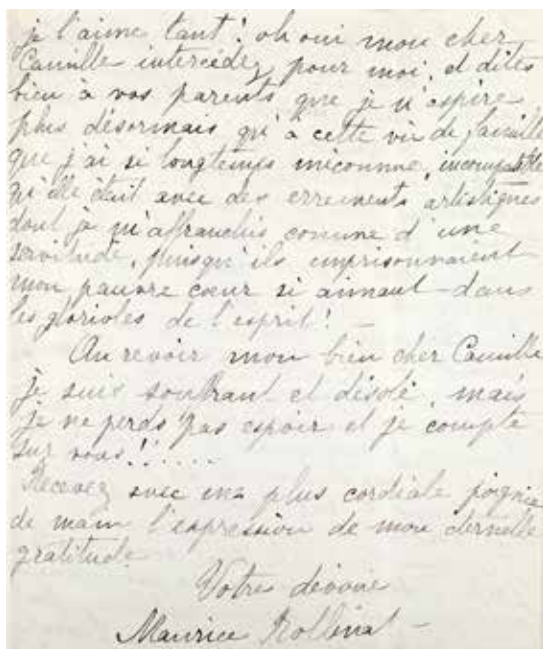 je l'aime tant ! oh oui mon cher
Camille intercédez pour moi, et dites
bien à vos parents que je n'aspire
plus désormais qu'à cette vie de famille
que j'ai si longtemps méconnue, incompatible
qu'elle était avec des errements artistiques
dont je m'affranchis comme d'une
servitude, puisqu'ils emprisonnaient
mon pauvre cœur si aimant dans
les glorioles de l'esprit ! —
Au revoir mon bien cher Camille
je suis souffrant et désolé, mais
je ne perds pas espoir et je compte
sur vous !!.....
Recevez avec ma plus cordiale poignée
de main l'expression de mon éternelle
gratitude
Votre dévoué
Maurice Rollinat —